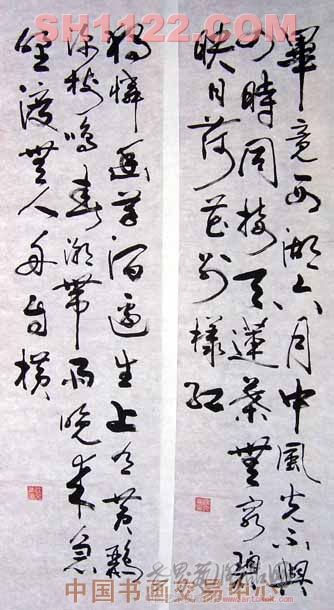 SH1122.COM
畢竟西湖六月中風光不與
四時同接天蓮葉無窮碧
映日荷花別樣紅
獨憐幽草澗邊生上有黃鸝
深樹鳴春潮帶雨晚來急
野渡無人舟自橫
中国书画交易中心